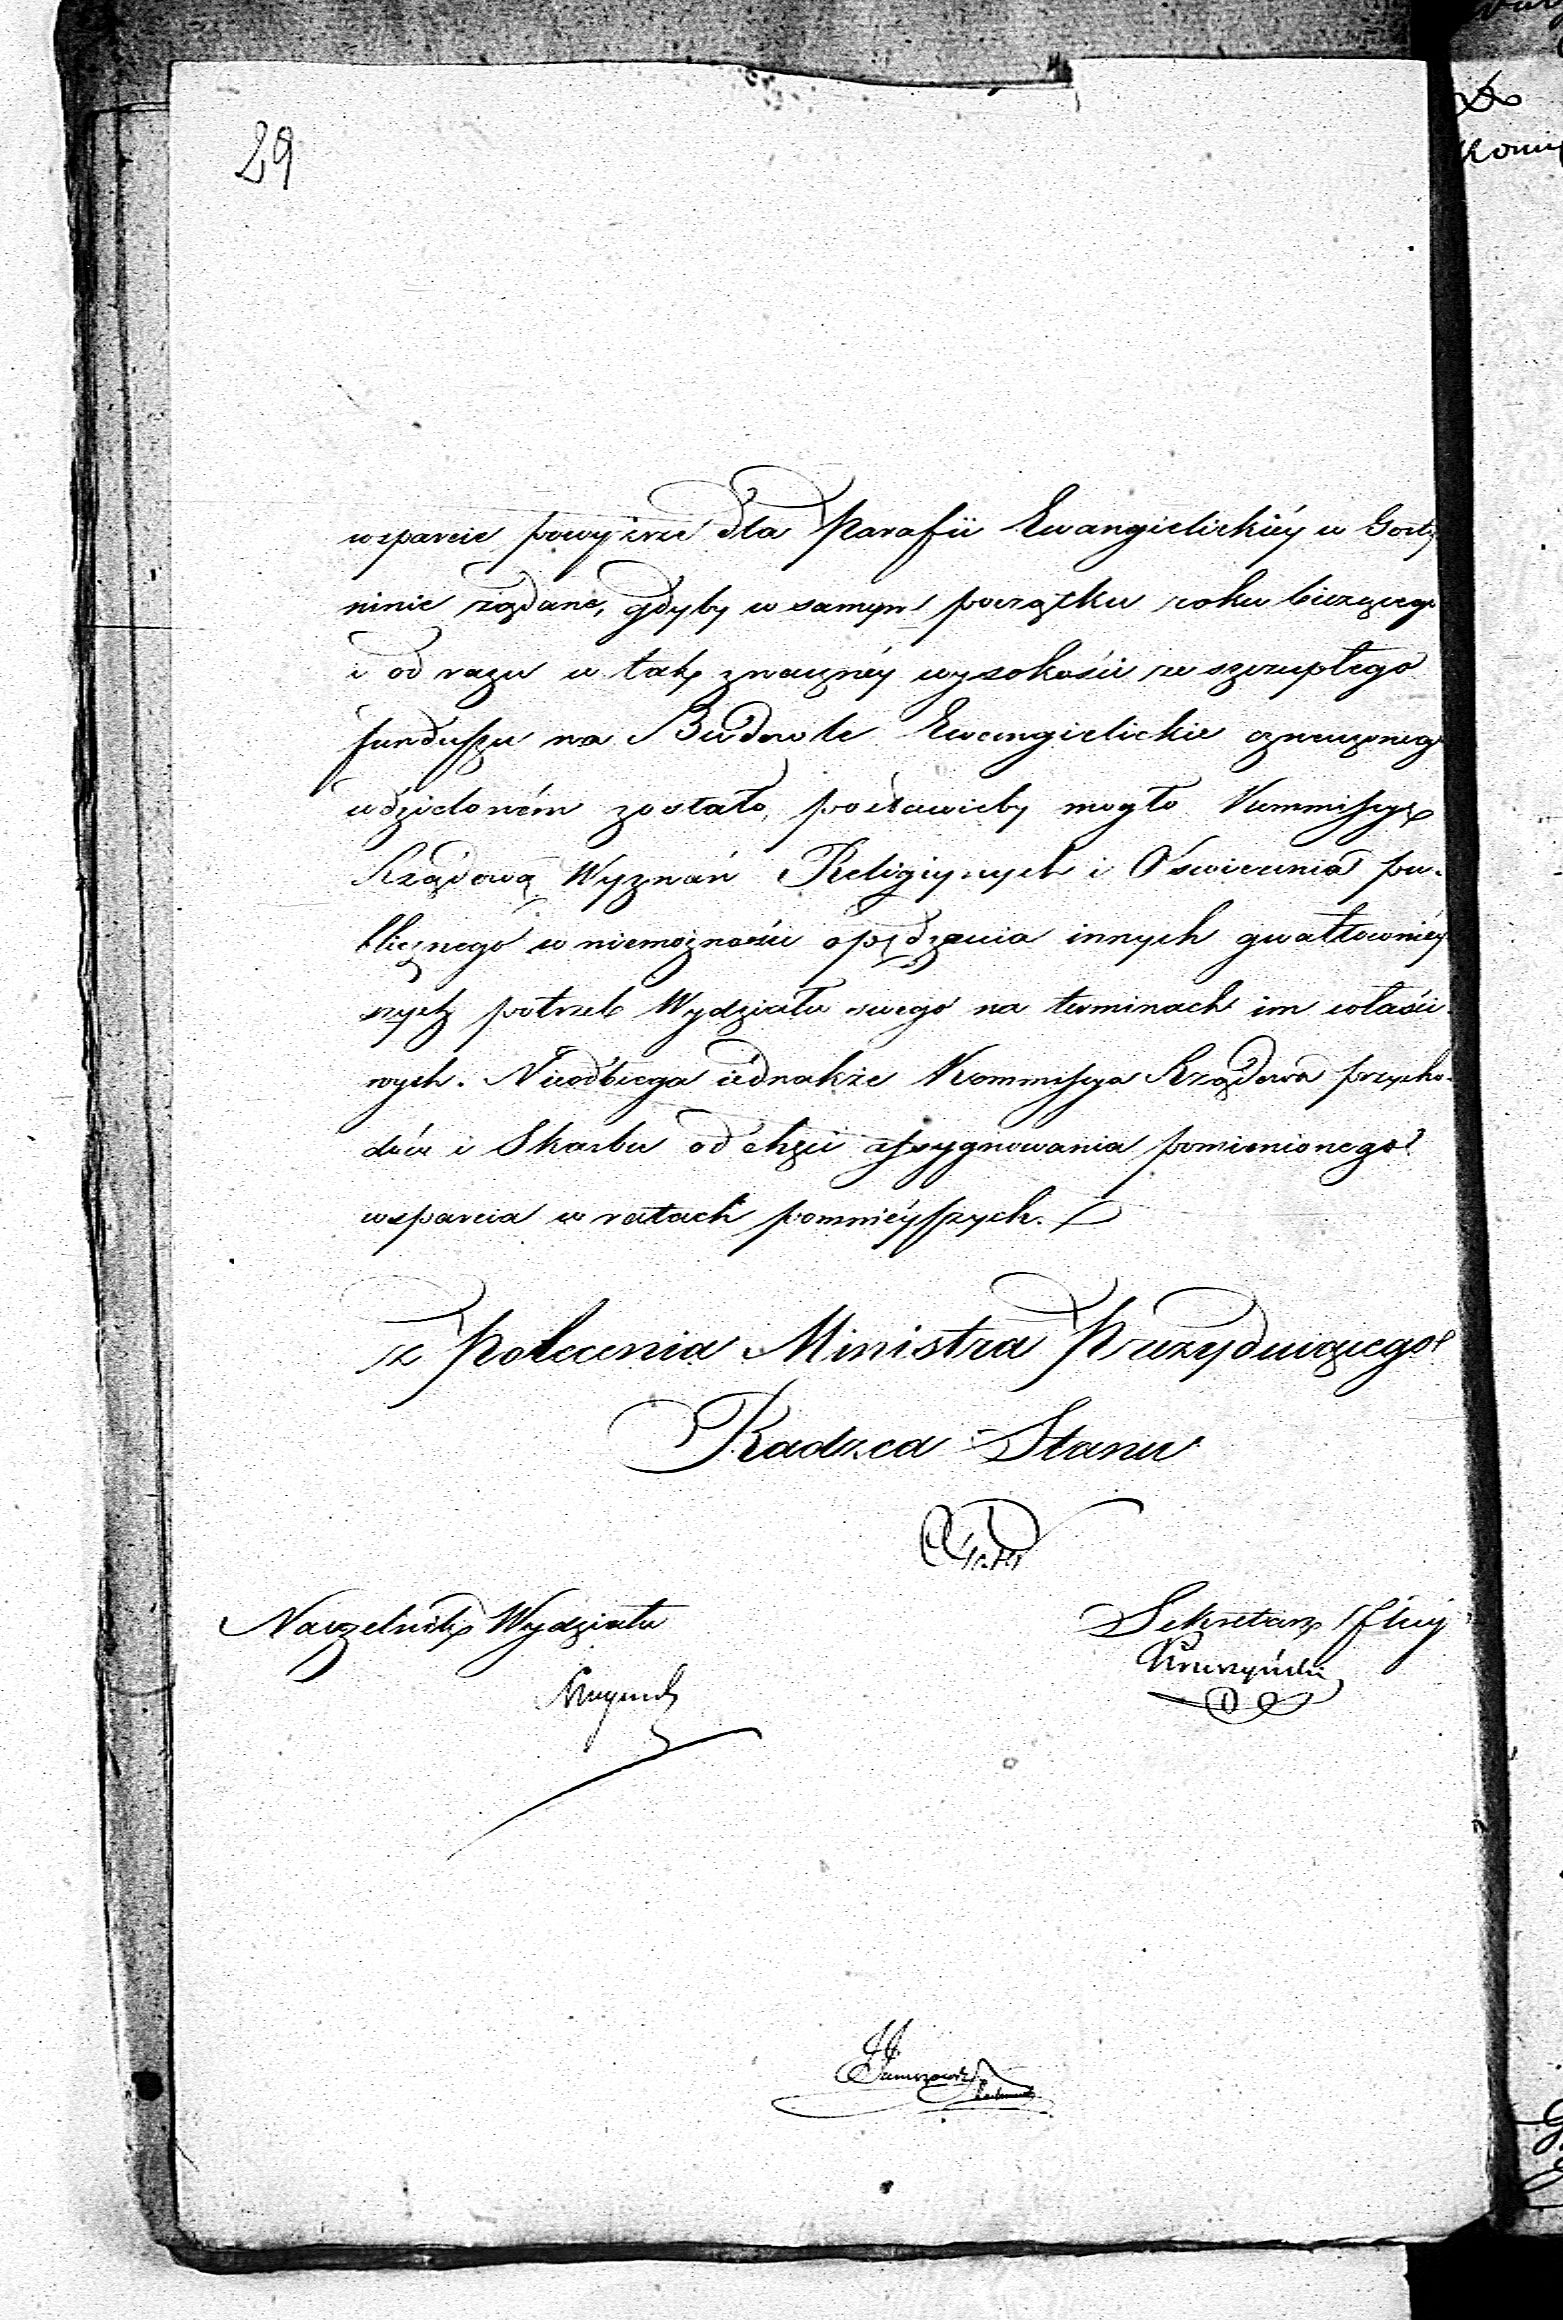 29
wsparcie powyższe dla Parafii Ewangielickiéy w Gosty
ninie żądane, gdyby w samym początku roku bieżącego
i od razu w tak znacznéy wysokości ze szczupłego
funduszu na Budowle Ewangielickie oznaczonego
udzieloném zostało, postawićby mogło Kommissyę
Rządową Wyznań Religiynych i Oświecenia pu-
blicznego w niemożności opędzania innych gwałtowniéy
szych potrzeb Wydziału swego na terminach im właści-
wych. Nieodbiega iednakże Kommissya Rządowa przycho-
dów i Skarbu od chęci assygnowania pomienionego
wsparcia w ratach pomnieyszych.
z Polecenia Ministra Prezyduiącego
Radzca Stanu
Naczelnik Wydziału
Sekretarz Jlny
Kruszyński